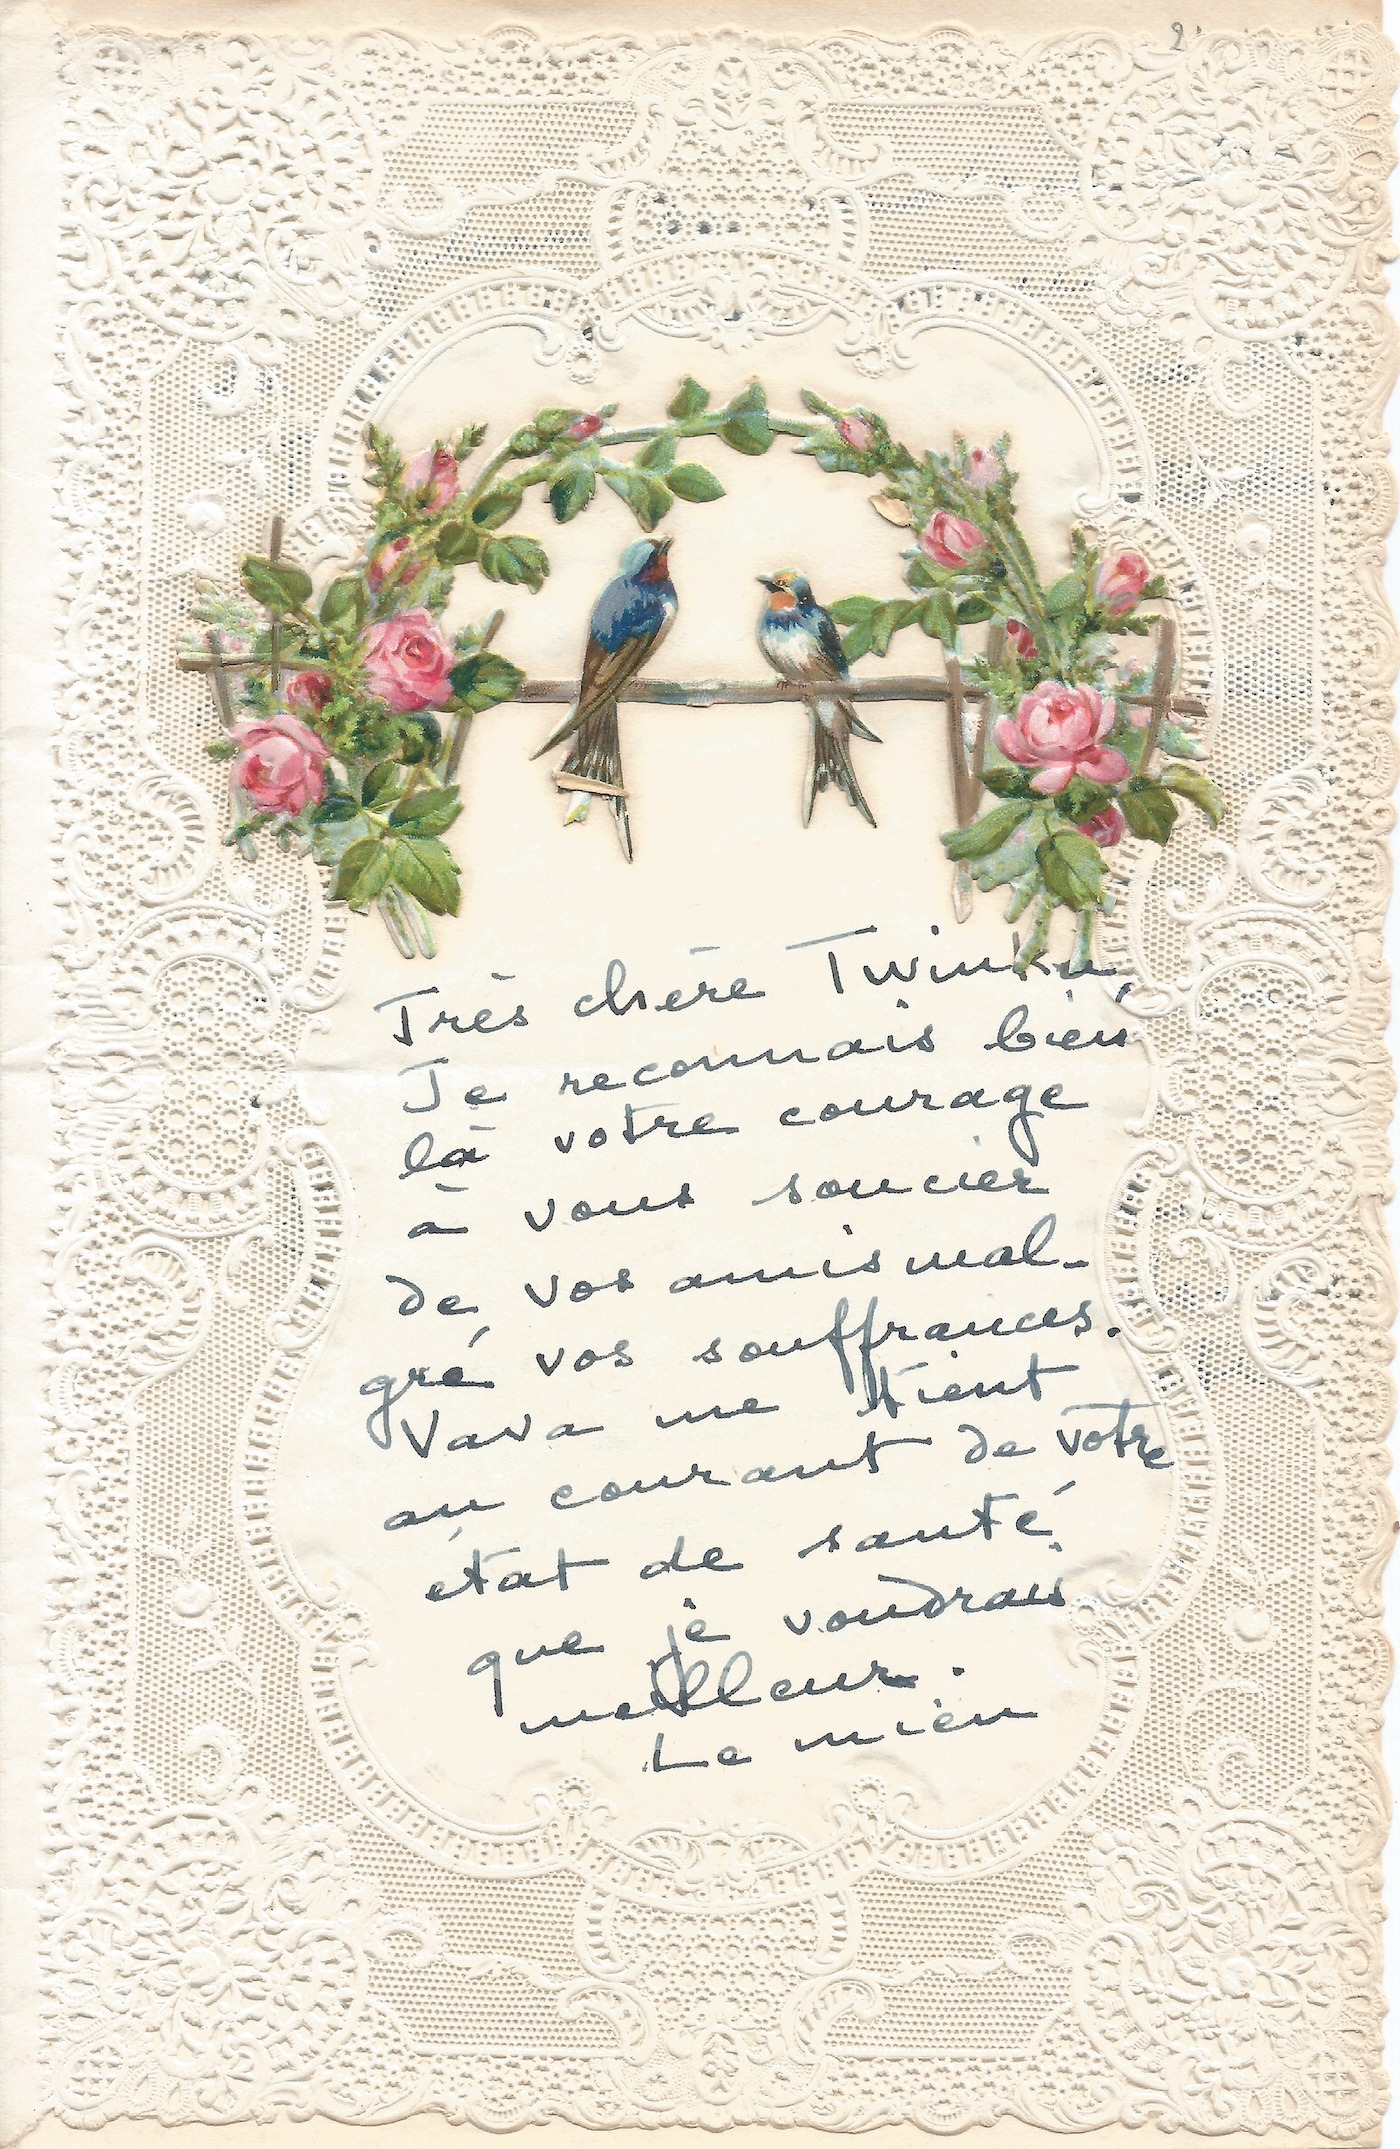 Très chère
Je reconnais bien
là votre courage
à vous soucier
de vos amis mal-
gré vos souffrances.
Vava me tient
au courant de votre
état de santé
que je voudrais
meilleur.
Le mien